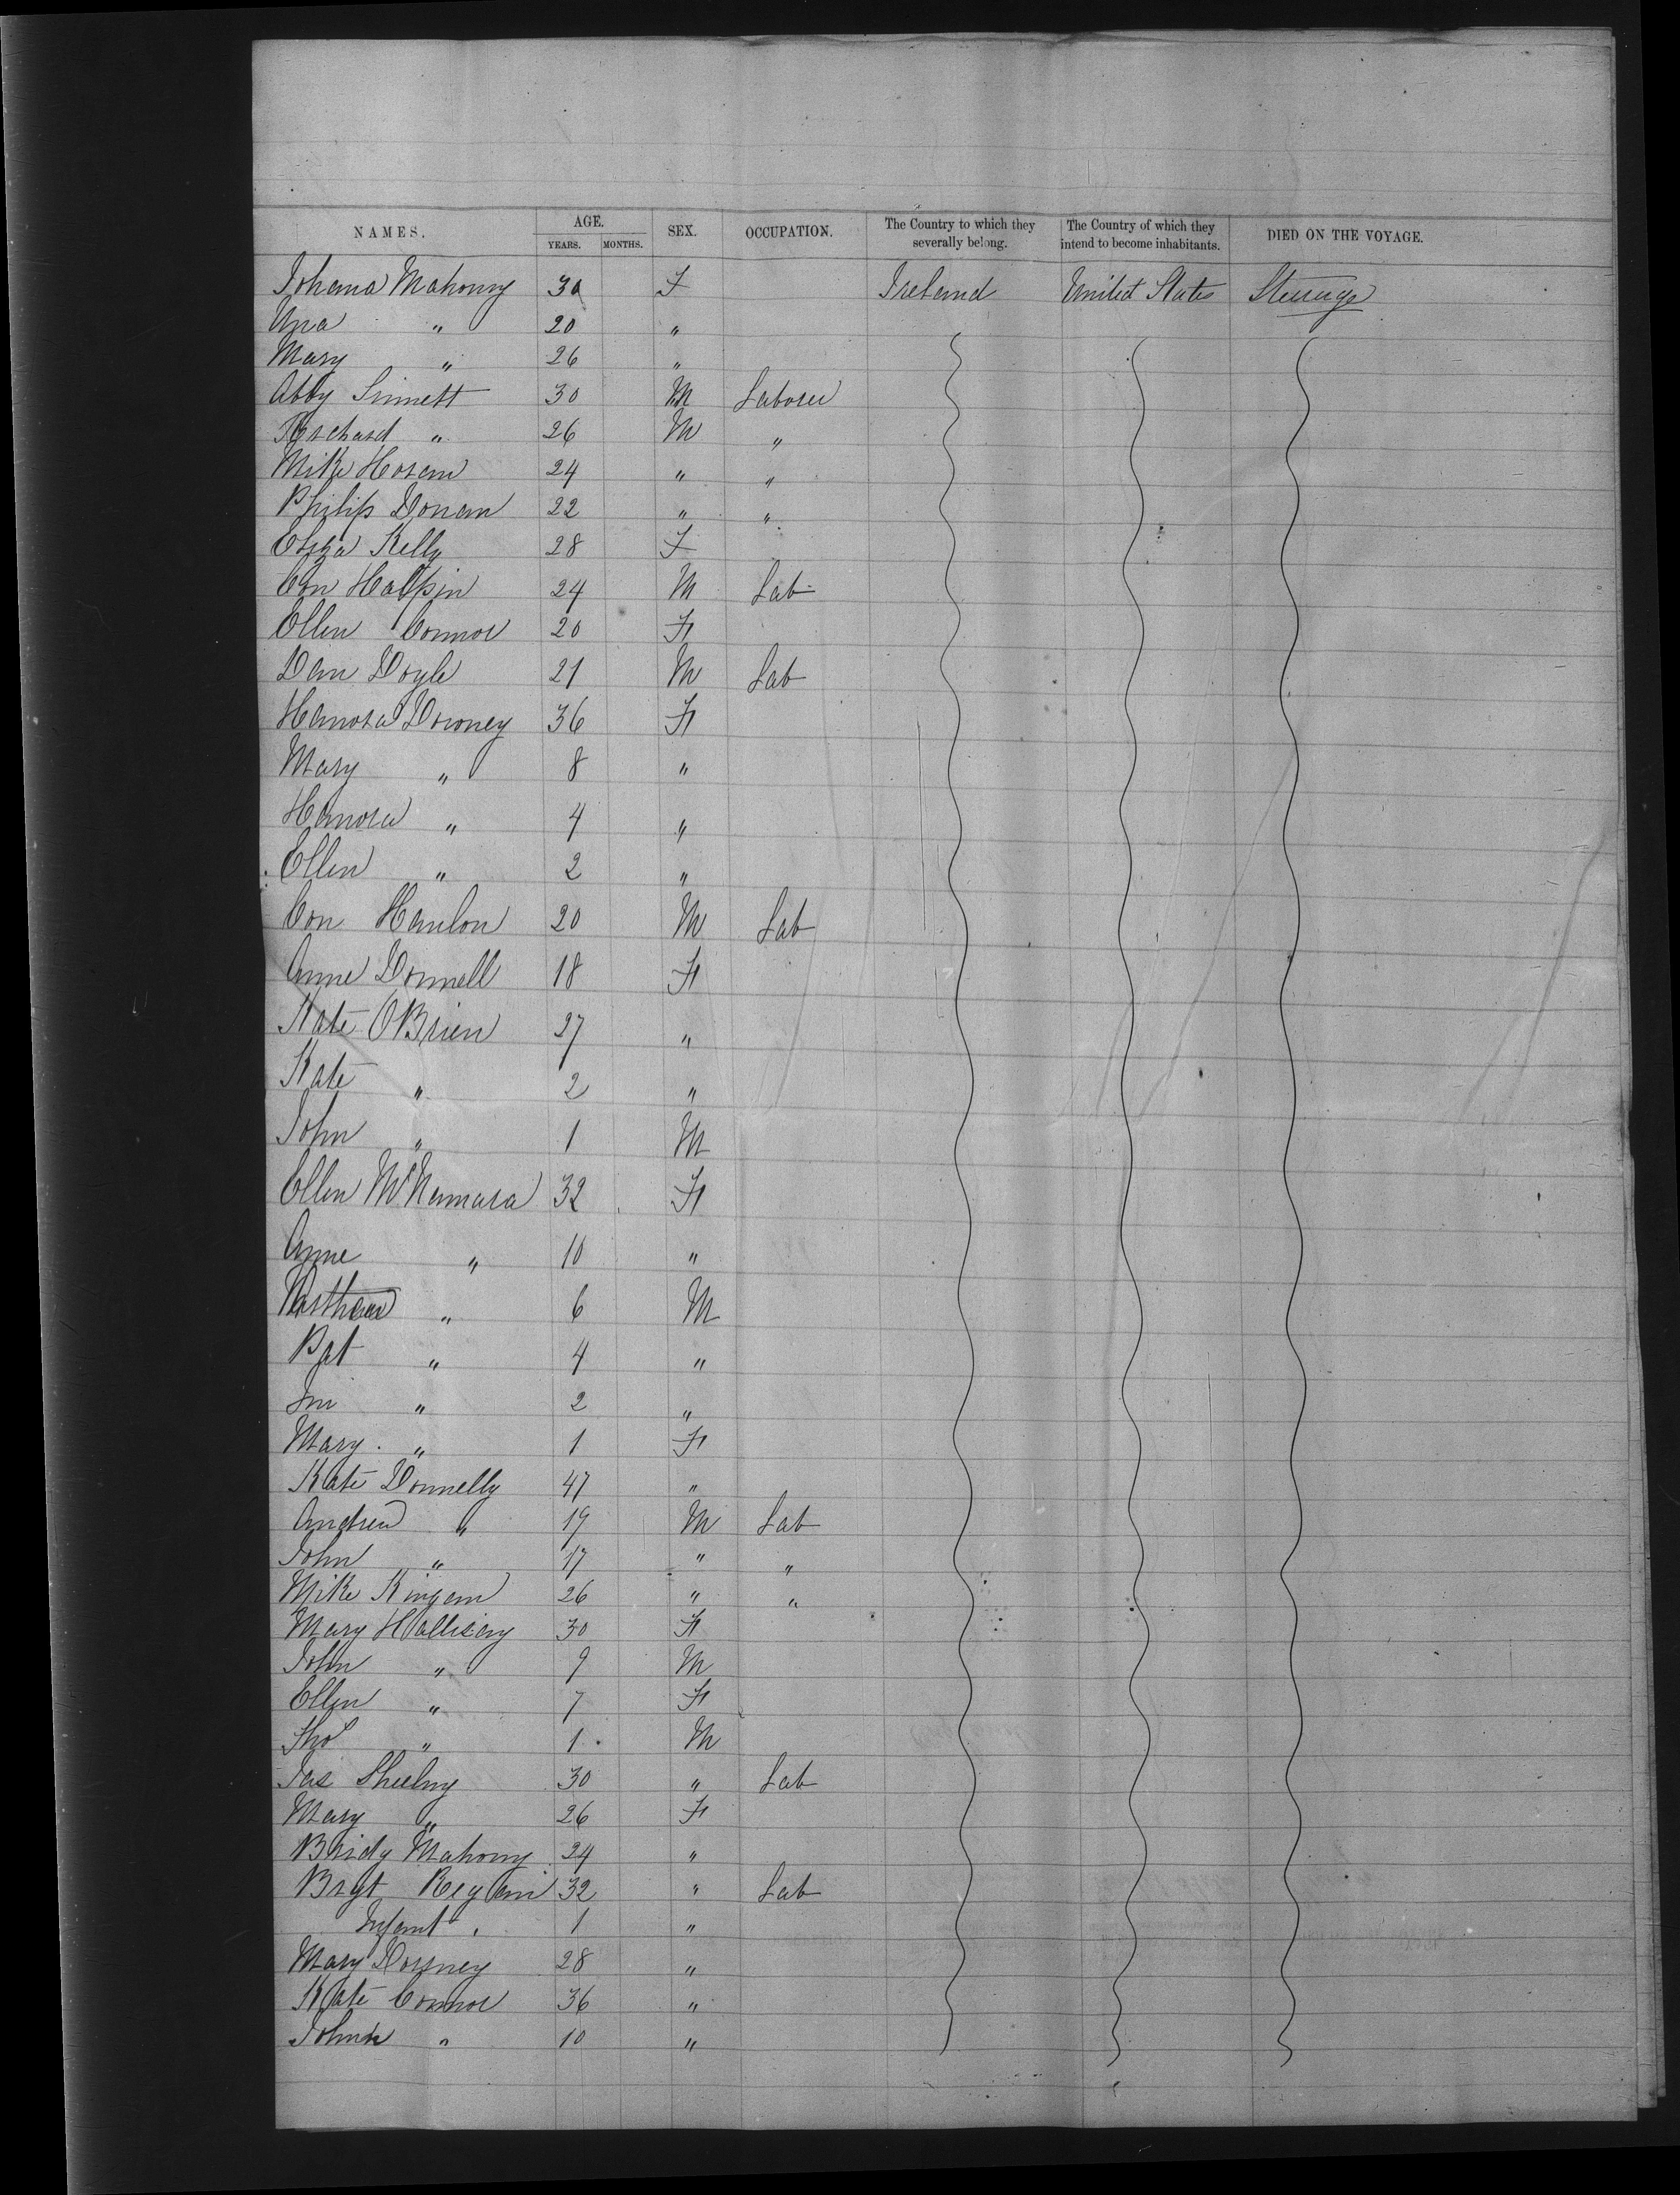 NAMES. AGE. SEX. OCCUPATION. The Country to which they severally belong. The Country of which they intend to become inhabitants. DIED ON THE VOYAGE.
YEARS. MONTHS.
Johana Mahony 30 F Ireland United States Steerage
Ana " 20 "
Mary " 26 "
Abby Sinnett 30 M Laborer
Richard " 26 M "
Mike Horan 24 " "
Philip Donan 22 " "
Eliza Kelly 28 F
Con Halpin 24 M Lab
Ellen Connor 20 F
Dan Doyle 21 M Lab
Hanora Downey 36 F
Mary " 8 "
Hanora " 4 "
Ellen " 2 "
Con Hanlon 20 M Lab
Anne Donnell 18 F
Kate OBrien 27 "
Kate " 2 "
John " 1 M
Ellen McNamara 32 F
Anne " 10 "
" 6 M
Pat " 4 "
" 2 "
Mary " 1 F
Kate Donnelly 47 "
Andrew " 19 M Lab
John " 17 " "
Mike Kingam 26 " "
Mary Hallisay 30 F
John " 9 M
Ellen " 7 F
Tho " 1 M
Jas Sheehy 30 " Lab
Mary " 26 F
Bridy Mahony 24 "
Brgt Regan 32 " Lab
Infant " 1 "
Mary Downey 28 "
Kate Connor 36 "
" 10 "